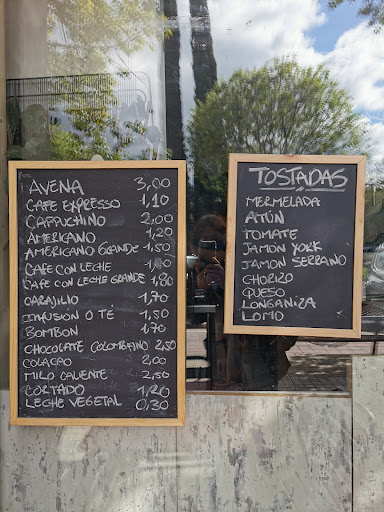 AVENA 3,00
CAFE EXPRESSO 1,10
CAPPUCHINO 2,00
AMERICANO 1,20
AMERICANO GRANDE 1,50
CAFE CON LECHE
CAFE CON LECHE GRANDE 1,80
CARAJILIO 1,70
INFUSIÓN O TE 1,50
BOMBON 1,70
CHOCOLATE COLOMBIANO 2,50
COLACAO 2,00
MILO CALIENTE 2,50
CORTADO 1,20
LECHE VEGETAL 0,30
TOSTADAS
MERMELADA
ATÚN
TOMATE
JAMON YORK
JAMON SERRANO
CHORIZO
QUESO
LONGANIZA
LOMO